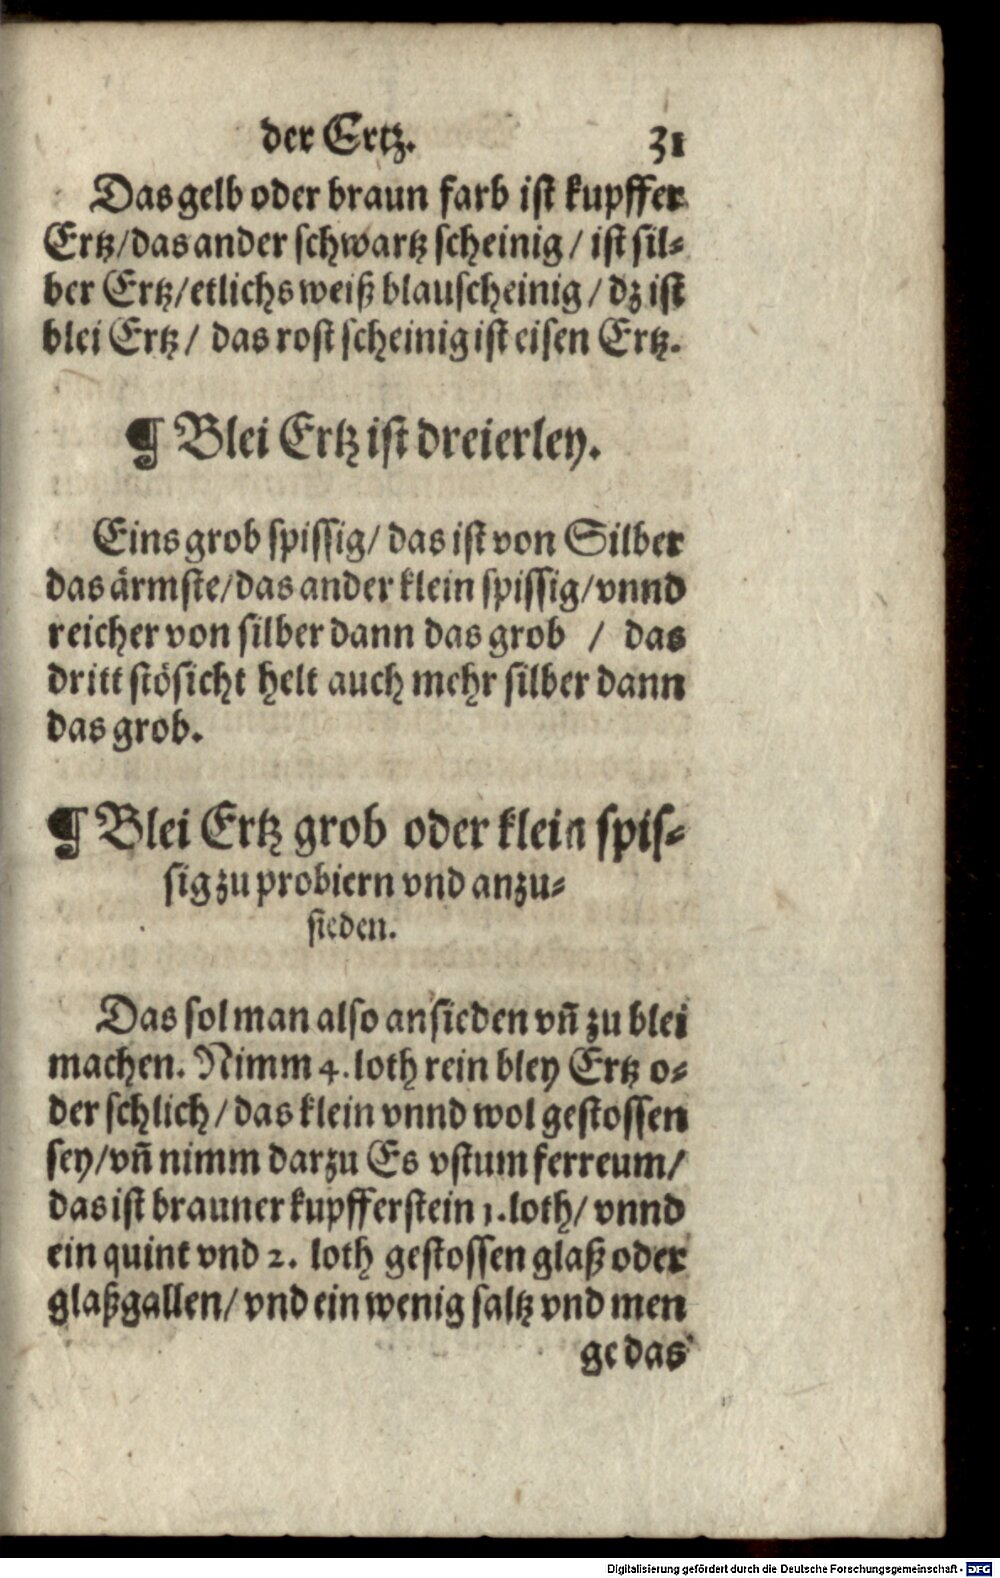 der Ertz. 31
Das gelb oder braun farb ist kupffer
Ertz/das ander schwartz scheinig/ ist sil⸗
ber Ertz/etlichs weiß blauscheinig/ dz ist
blei Ertz/ das rost scheinig ist eisen Ertz.
¶ Blei Ertz ist dreierley.
Eins grob spissig/ das ist von Silber
das ärmste/das ander klein spissig/vnnd
reicher von silber dann das grob / das
dritt stösicht helt auch mehr silber dann
das grob.
¶ Blei Ertz grob oder klein spis⸗
sig zu probiern vnd anzu⸗
sieden.
Das sol man also ansieden vñ zu blei
machen. Nimm 4. loth rein bley Ertz o⸗
der schlich/das klein vnnd wol gestossen
sey/vñ nimm darzu Es vstum ferreum/
das ist brauner kupfferstein 1. loth/ vnnd
ein quint vnd 2. loth gestossen glaß oder
glaßgallen/ vnd ein wenig saltz vnd men
ge das
Digitalisierung gefördert durch die Deutsche Forschungsgemeinschaft - DFG